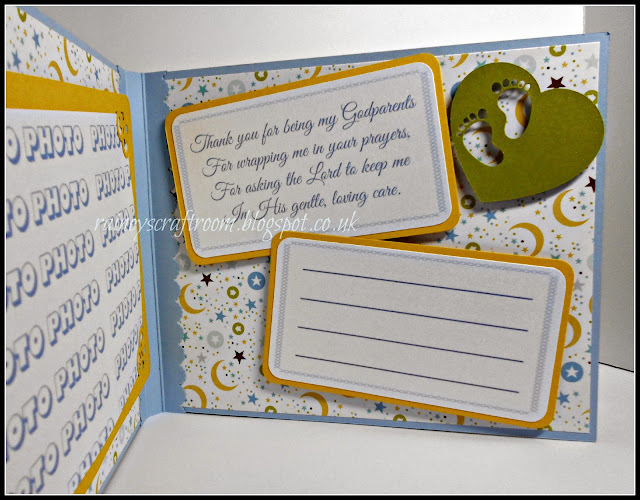 PHOTO PHOTO
PHOTO PHOTO
PHOTO PHOTO
PHOTO PHOTO
PHOTO PHOTO
PHOTO PHOTO
PHOTO PHOTO
PHOTO
Thank you for being my Godparents
For wrapping me in your prayers,
For asking the Lord to keep me
In His gentle, loving care.